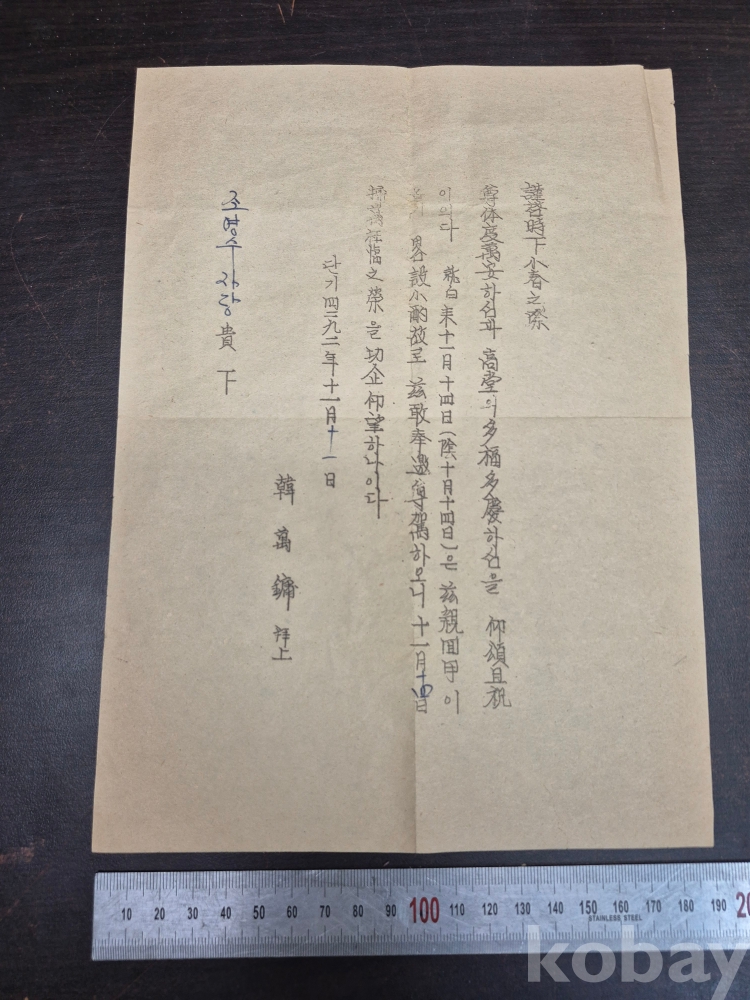 謹啓時下小春之際
尊体度萬安하심과 高堂의 多福多慶하심을 仰頌且祝
이외다 就白 来十一月十四日(陰十月十四日)은 玆親回甲이
畧設小酌故로 玆敢奉邀尊駕하오니 十一月十四日
枉臨之榮을 切企仰望하나이다
단기四二九二年十一月十一日
韓萬鏞 拜上
조영수 사랑 貴下
10 20 30 40 50 60 70 80 90 100 110 120 130 140 150 160 170 180 190 20
STAINLESS STEEL
kobay